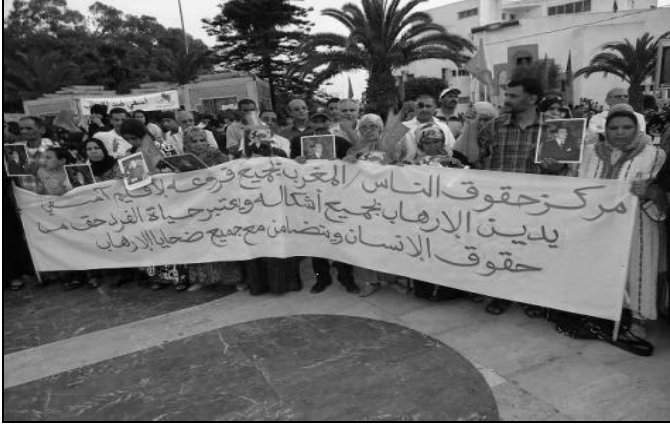 مركز حقوق الناس / المغرب بجميع فروعه لإقليم آسفي
يدين الإرهاب بجميع أشكاله ويعتبر حياة الفرد حق من
حقوق الإنسان ويتضامن مع جميع ضحايا الإرهاب